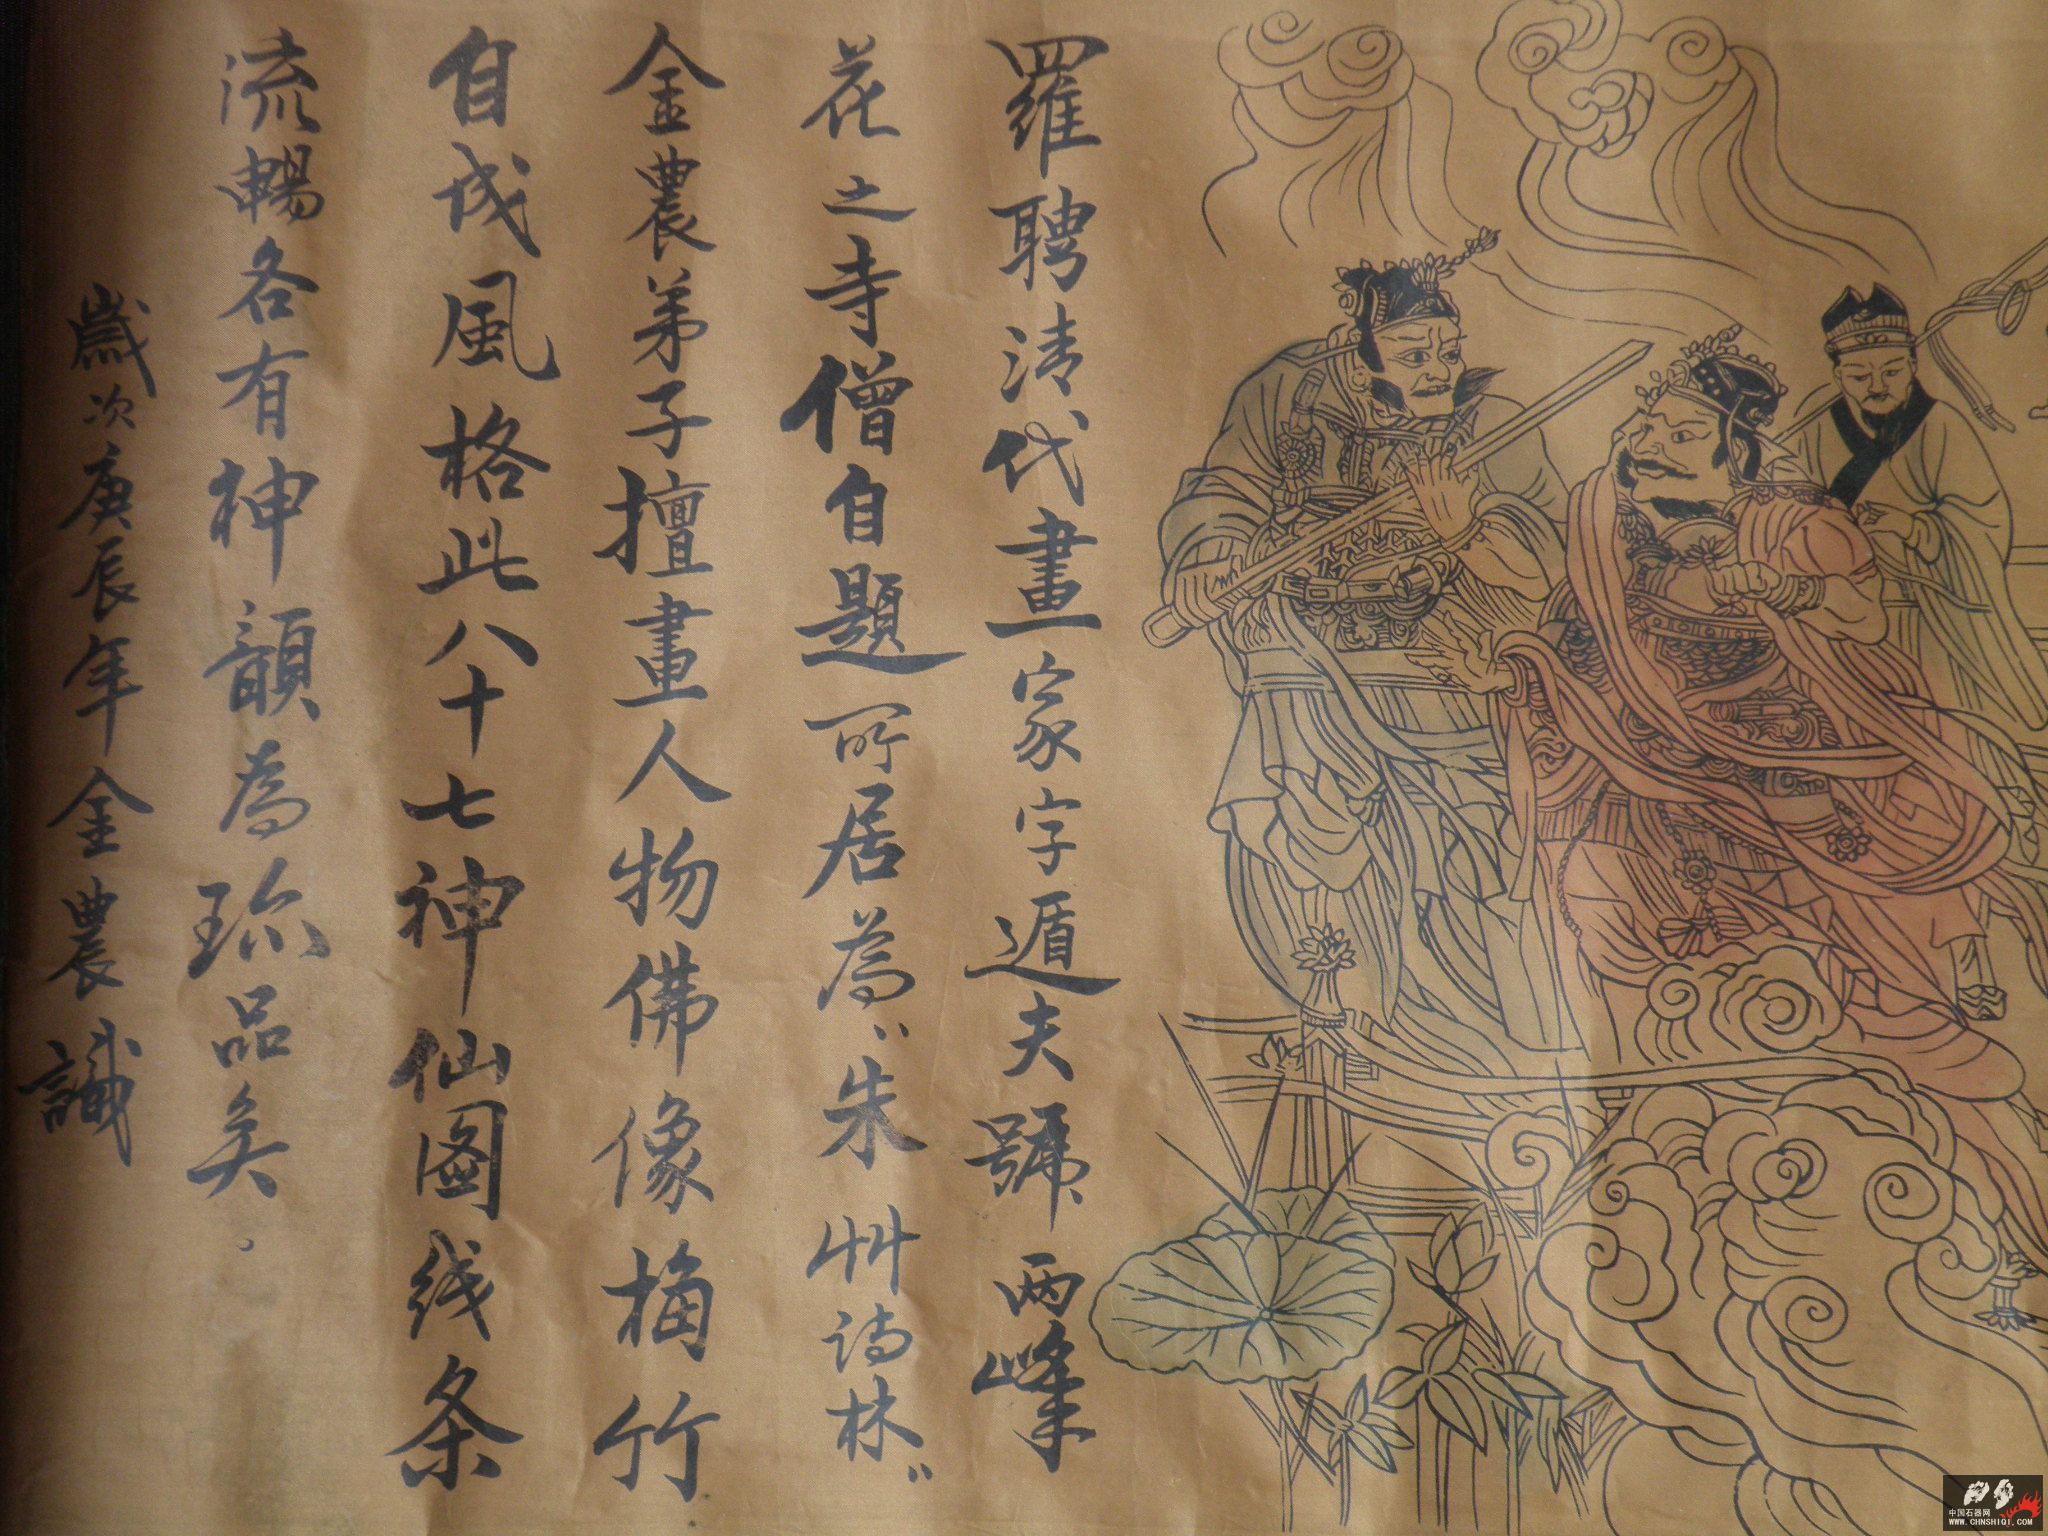 羅聘清代畫家字遁夫號两峰
花之寺僧自題所居為“朱艸诗林”
金農弟子擅畫人物佛像梅竹
自成風格此八十七神仙图线条
流暢各有神韻為珎品矣。
歲次庚辰年金農識
中国石器网
WWW.CHNSHIQI.COM